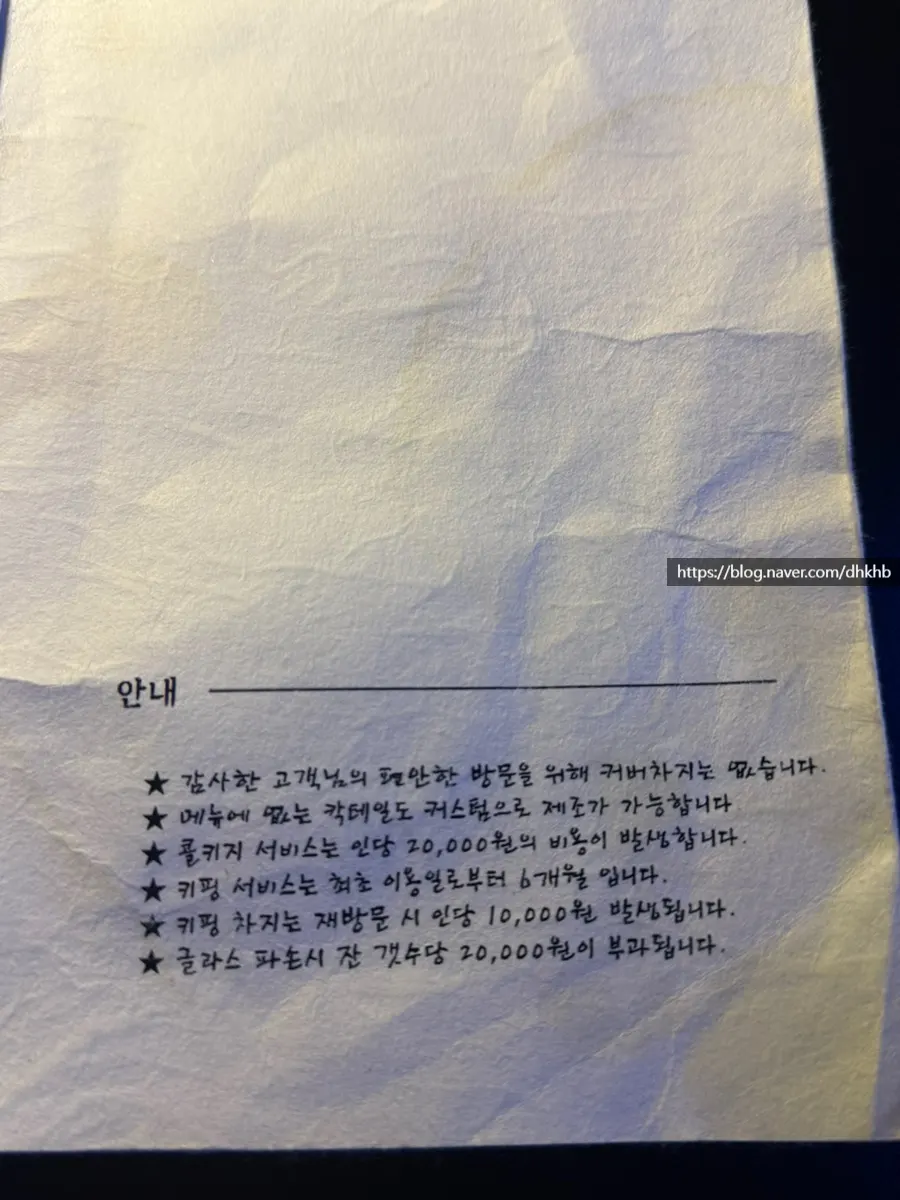 https://blog.naver.com/dhkhb
안내
★ 감사한 고객님의 편안한 방문을 위해 커버차지는 없습니다.
★ 메뉴에 없는 칵테일도 커스텀으로 제조가 가능합니다
★ 콜키지 서비스는 인당 20,000원의 비용이 발생합니다.
★ 키핑 서비스는 최초 이용일로부터 6개월 입니다.
★ 키핑 차지는 재방문 시 인당 10,000원 발생됩니다.
★ 글라스 파손시 잔 갯수당 20,000원이 부과됩니다.